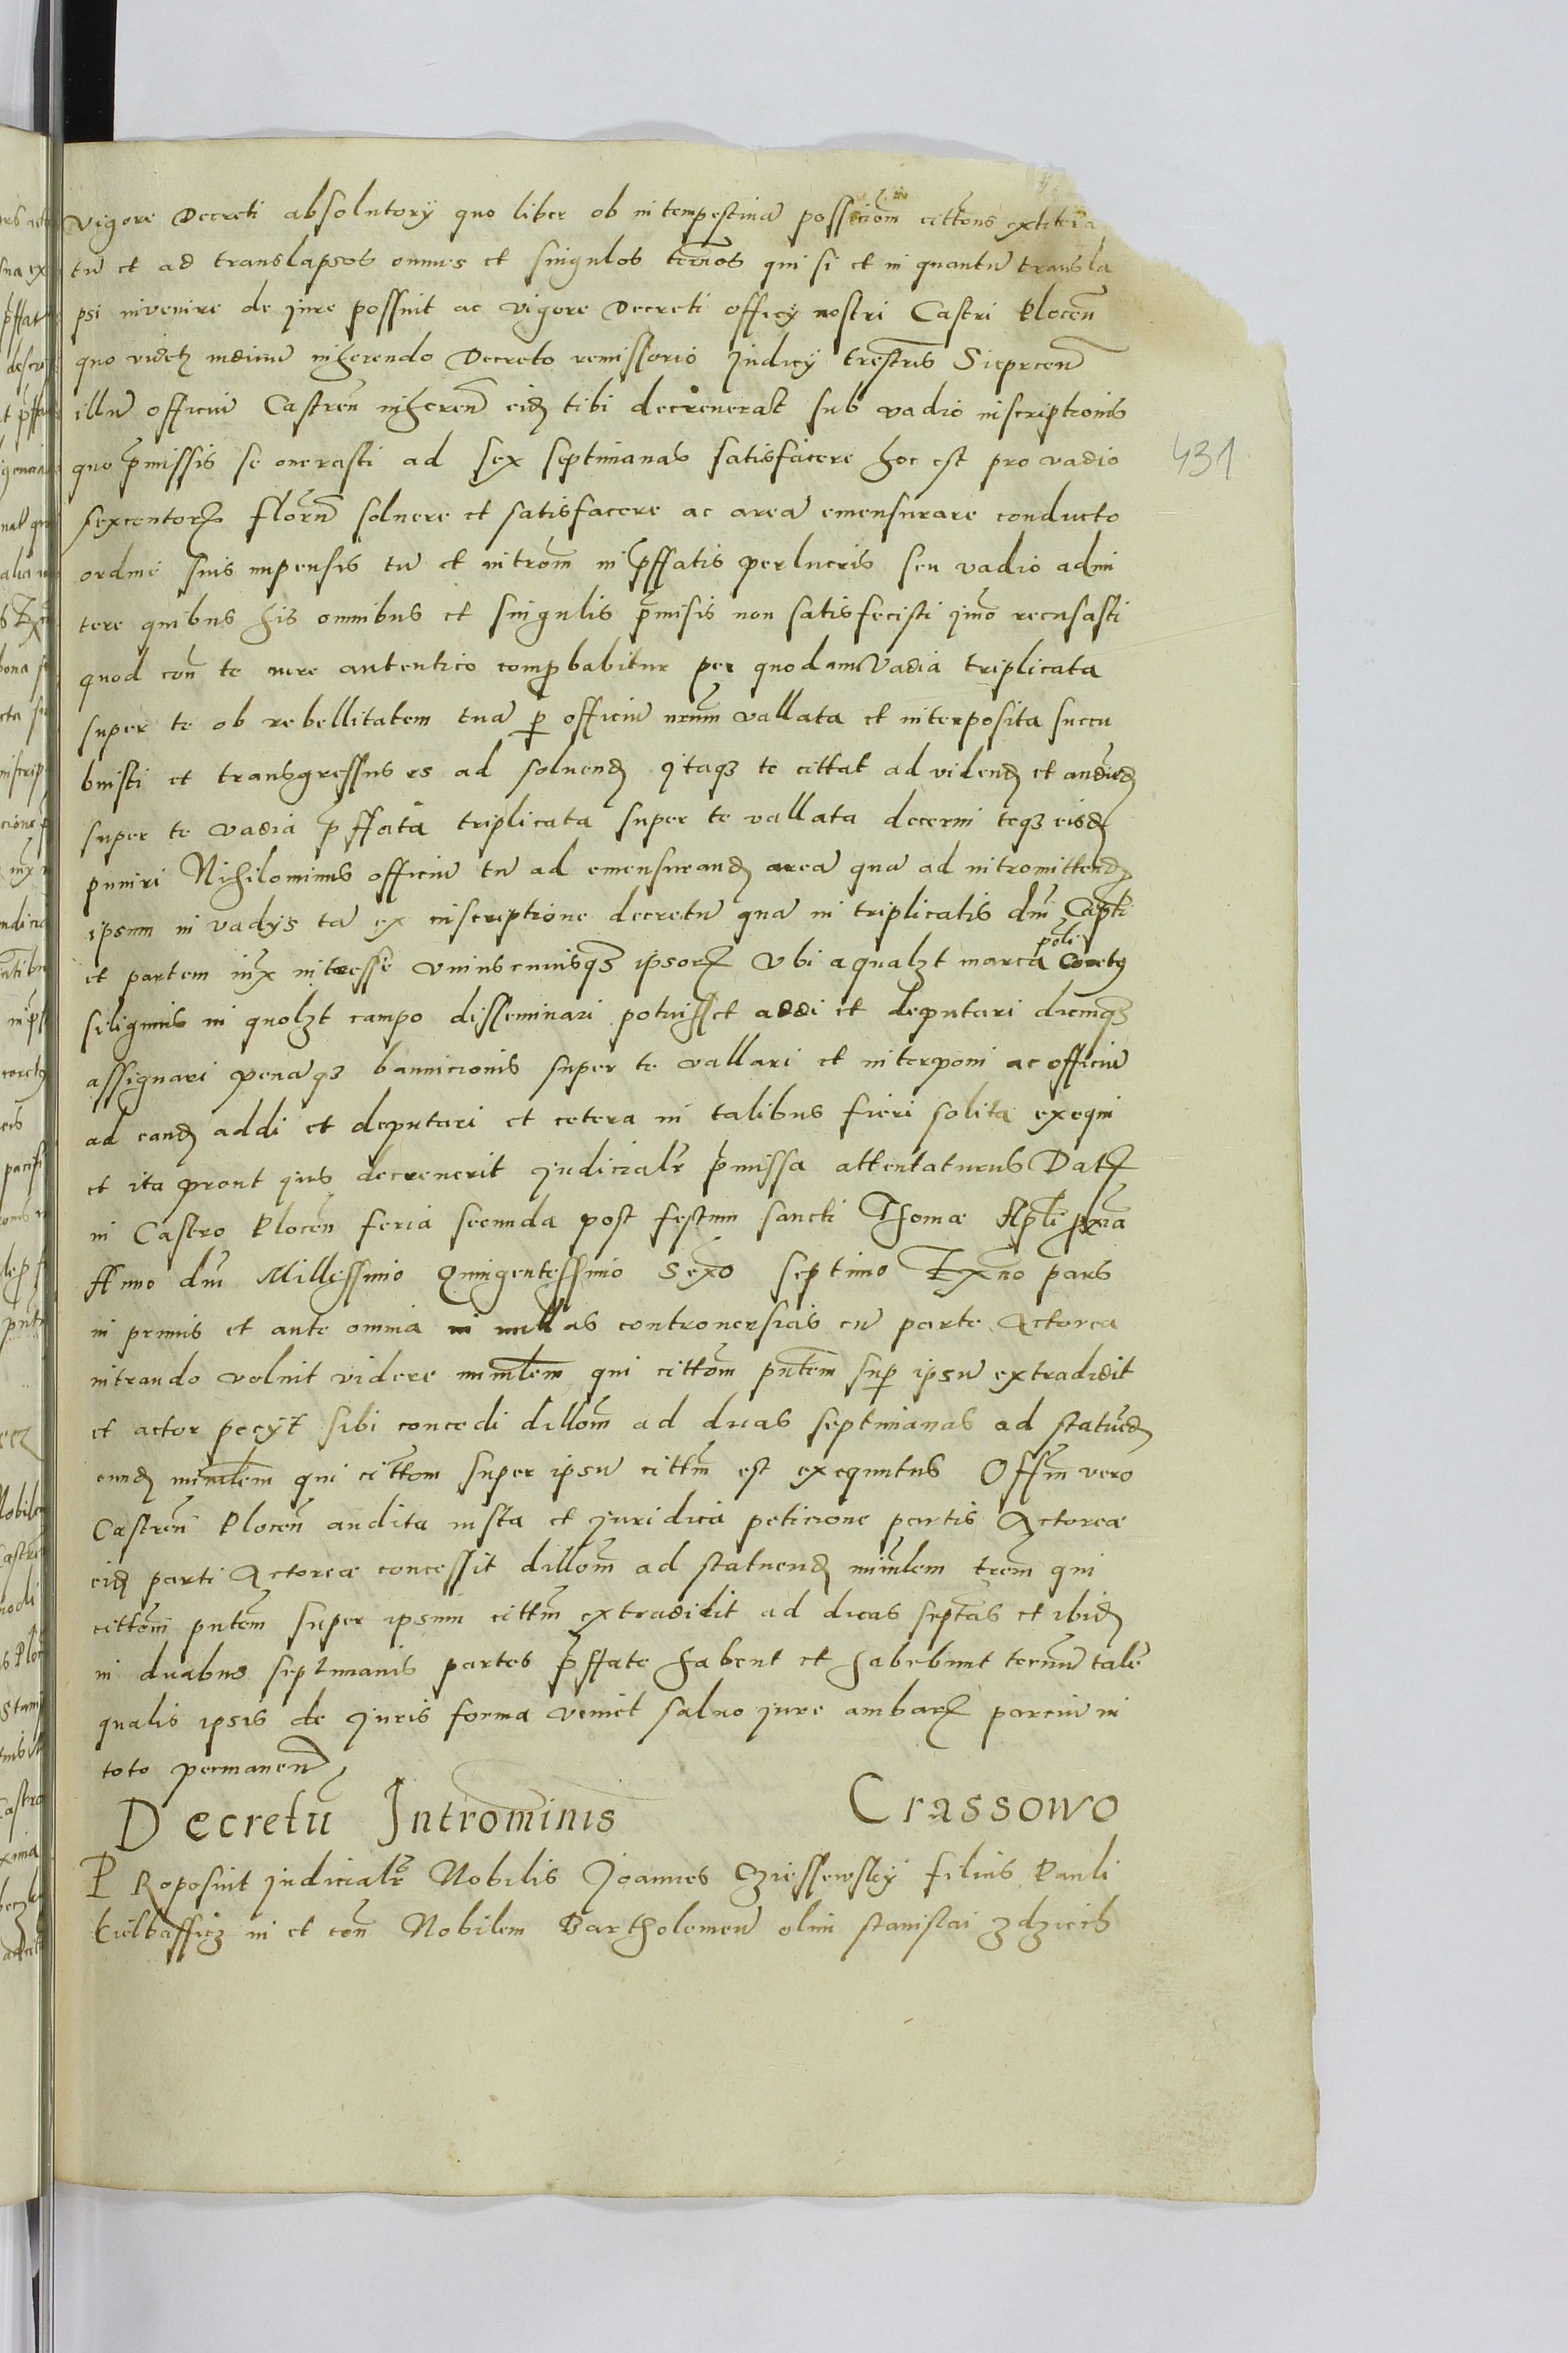 vigore Decreti absolutory quo liber ob intempestiva possiciom cittons extitera
tu et ad translapsos omnes et singulos ternos qui si et in quantu transla
psi invenire de jure possint ac vigore Decreti officy nostri Castri Plocen
quo videlz mediu inherendo Decreto remissorio Judicy trestris Sieprcen
illu officiu Castren inheren eid tibi decreverat sub vadio inscriptionis
quo pmissis se onerasti ad sex septimanas satisfacere hoc est pro vadio
sexcentorz florn solvere et satisfacere ac area emensurare conducto
ordine suis impensis tu et introm in pffatis perlucris seu vadio admi
tere quibus his omnibus et singulis pmisis non satisfecisti imo recusasti
quod con te iure autentico compbabitur per quodam vadia triplicata
super te ob rebellitatem tua p officiu nrum vallata et interposita succu
buisti et transgressus es ad solvend Itaqz te cittat ad vidend et audied
super te vadia pffata triplicata super te vallata decerni teqz eisd
puniri Nihilominus officiu tu ad emensurand area qua ad intromittend
ipsum in vadys ta ex inscriptione decretu qua in triplicatis dni Capti
et partem iux interesse uniuscuiusqz ipsorz Ubi aqualzt marca poli coretus
siliginis in quolzt campo disseminari potuisset addi et deputari diemqz
assignari penaqz bannicionis super te vallari et interponi ac officiu
ad eand addi et deputari et cetera in talibus fieri solita exequi
et ita pront jus decreverit judicialr pmissa attentaturus Datz
in Castro Plocen feria secunda post festum sancti Thomæ Apli pxia
Anno dni Millessimo Quingentessimo Sexo septimo Exno pars
in primis et ante omnia in nullas controversias cu parte Actorea
intrando voluit videre minlem qui cittom pntem sup ipsu extradidit
et actor pecyt sibi concedi dillom ad duas septimanas ad statued
eund minlem qui cittom super ipsu cittm est exequutus Offm vero
Castren Plocen audita iusta et juridica peticione partis Actoreæ
eid parti Actoreæ concessit dillom ad statuend minlem trem qui
cittom pntem super ipsum cittm extradidit ad duas septas et ibid
in duabus septimanis partes pffate habent et habebunt ternu tale
qualis ipsis de juris forma veniet salvo jure ambarz parciu in
toto permanen
Decretu Introminis Crassowo
PRoposuit judicialr Nobilis Joannes Cziessewsky filius Pauli
kielbassicz in et con Nobilem Bartholomeu olim stanislai zdziech
431